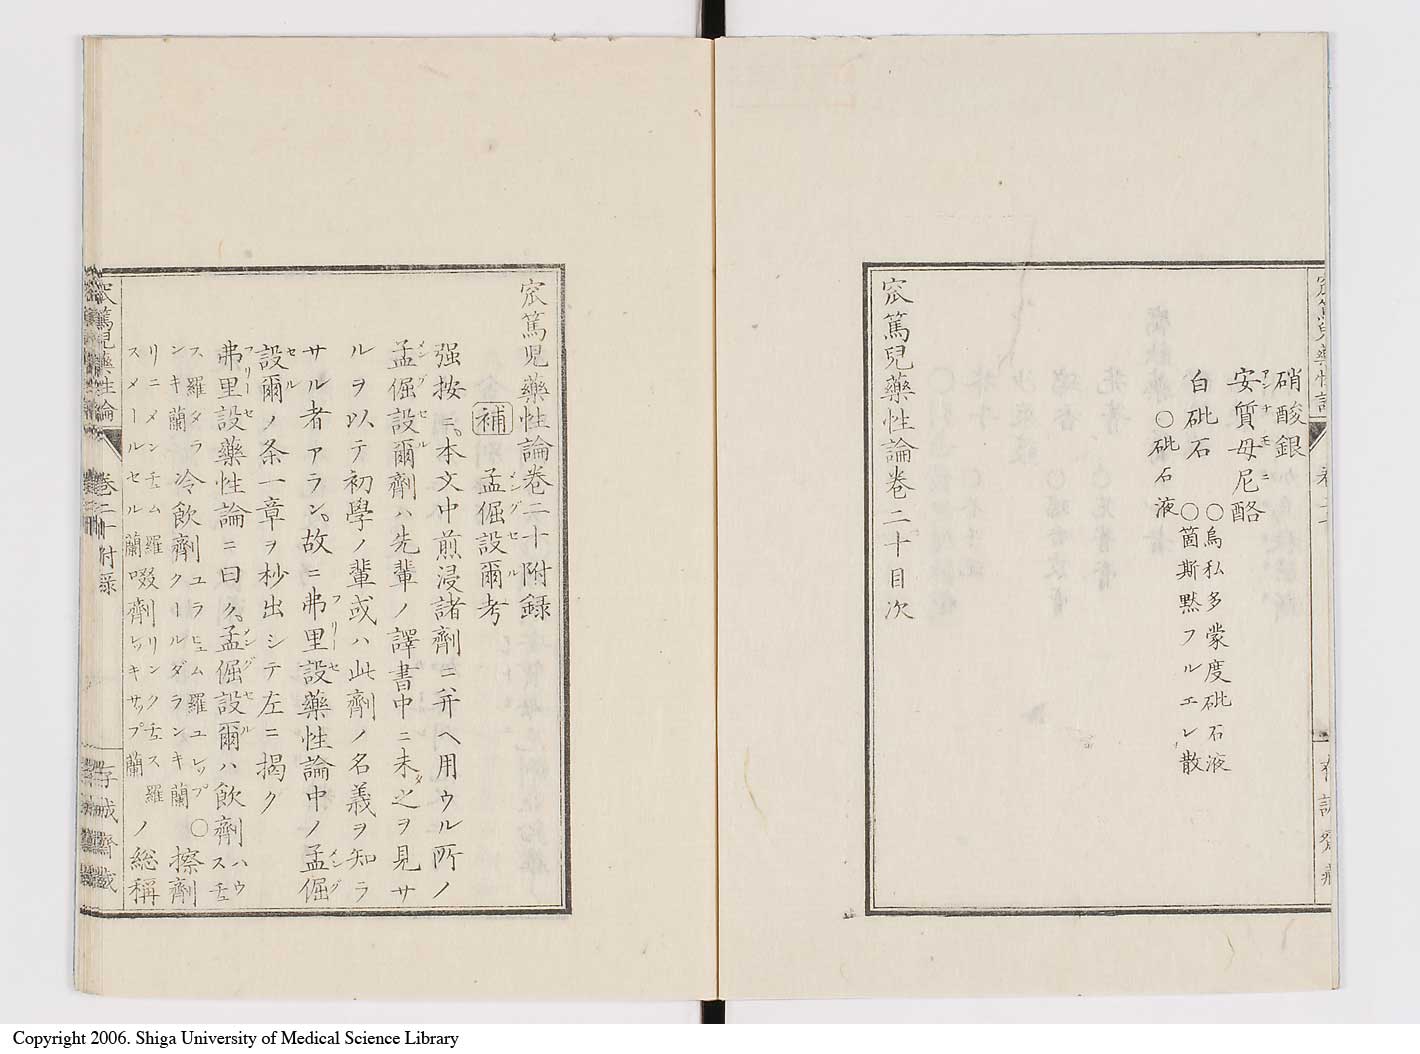 硝酸銀
安質母尼酪
アンチモニ
○烏私多蒙度砒石液
白砒石
○箇斯黙フルエレ散
○砒石液
宻篤兒藥性論卷二十目次
宻篤兒藥性論卷二十附録
補 孟倔設爾考
メングセル
强按ニ、本文中煎浸諸劑ニ幷ヘ用ウル所ノ
孟倔設爾劑ハ先輩ノ譯書中ニ未タ之ヲ見サ
メングセル
ルヲ以テ初學ノ輩或ハ此劑ノ名義ヲ知ラ
サル者アラン、故ニ弗里設藥性論中ノ孟倔
フリーセ メング
設爾ノ条一章ヲ杪出シテ左ニ揭ク
セル
弗里設藥性論ニ曰ク、孟倔設爾ハ飲劑
フリーセ メングセル
冷飲劑 ○擦劑
啜劑 ノ総稱
宻篤兒藥性論 卷二十附録 存誠齋藏
Copyright 2006. Shiga University of Medical Science Library